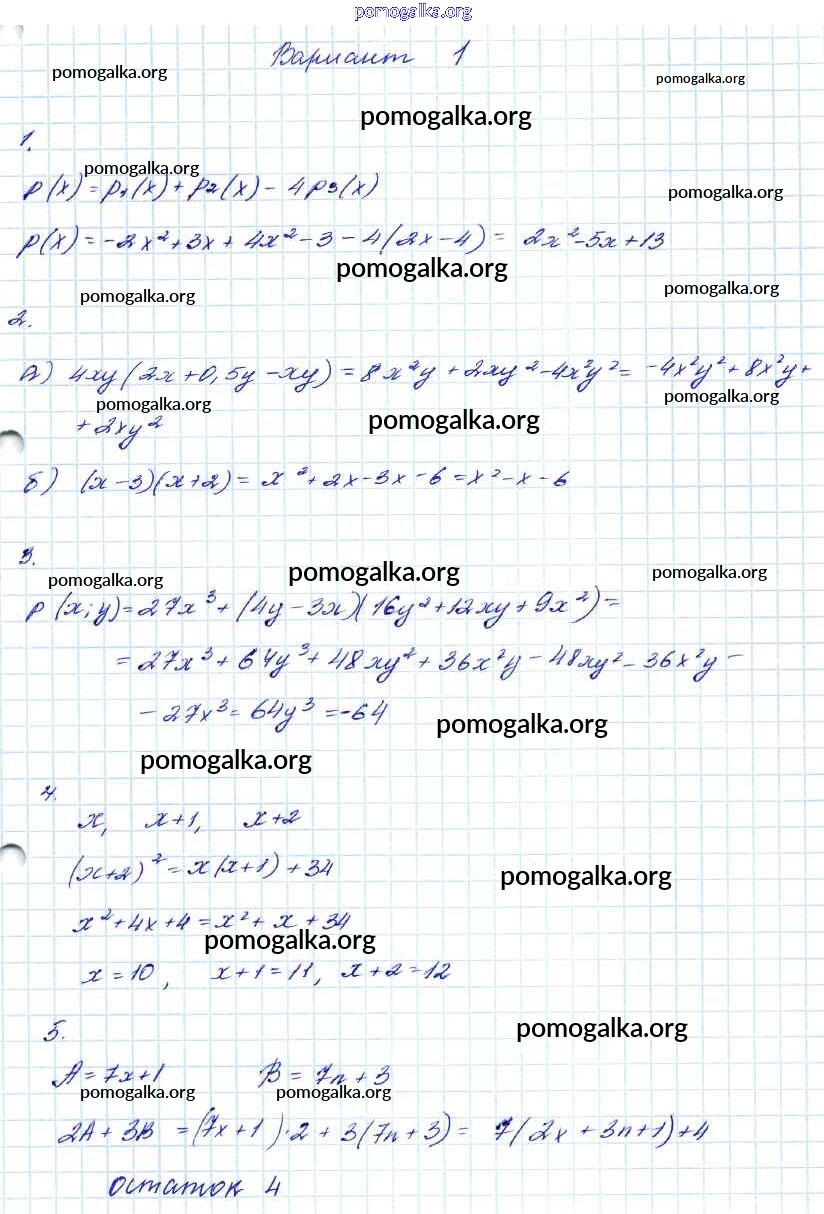 pomogalka.org
Вариант 1
pomogalka.org
pomogalka.org
pomogalka.org
1.
pomogalka.org
p(x) = p1(x) + p2(x) - 4p3(x)
pomogalka.org
p(x) = -2x² + 3x + 4x² - 3 - 4(2x - 4) = 2x² - 5x + 13
pomogalka.org
pomogalka.org
pomogalka.org
2.
а) 4xy(2x + 0,5y - xy) = 8x²y + 2xy² - 4x²y² = -4x²y² + 8x²y +
pomogalka.org
pomogalka.org
+ 2xy²
pomogalka.org
б) (x - 3)(x + 2) = x² + 2x - 3x - 6 = x² - x - 6
3.
pomogalka.org
pomogalka.org
pomogalka.org
p(x; y) = 27x³ + (4y - 3x)(16y² + 12xy + 9x²) =
= 27x³ + 64y³ + 48xy² + 36x²y - 48xy² - 36x²y -
- 27x³ = 64y³ = -64
pomogalka.org
pomogalka.org
4.
x, x+1, x+2
(x+2)² = x(x+1) + 34
pomogalka.org
x² + 4x + 4 = x² + x + 34
pomogalka.org
x = 10, x+1 = 11, x+2 = 12
5.
pomogalka.org
A = 7x+1 B = 7n + 3
pomogalka.org
pomogalka.org
2A + 3B = (7x + 1)·2 + 3(7n + 3) = 7(2x + 3n + 1) + 4
остаток 4